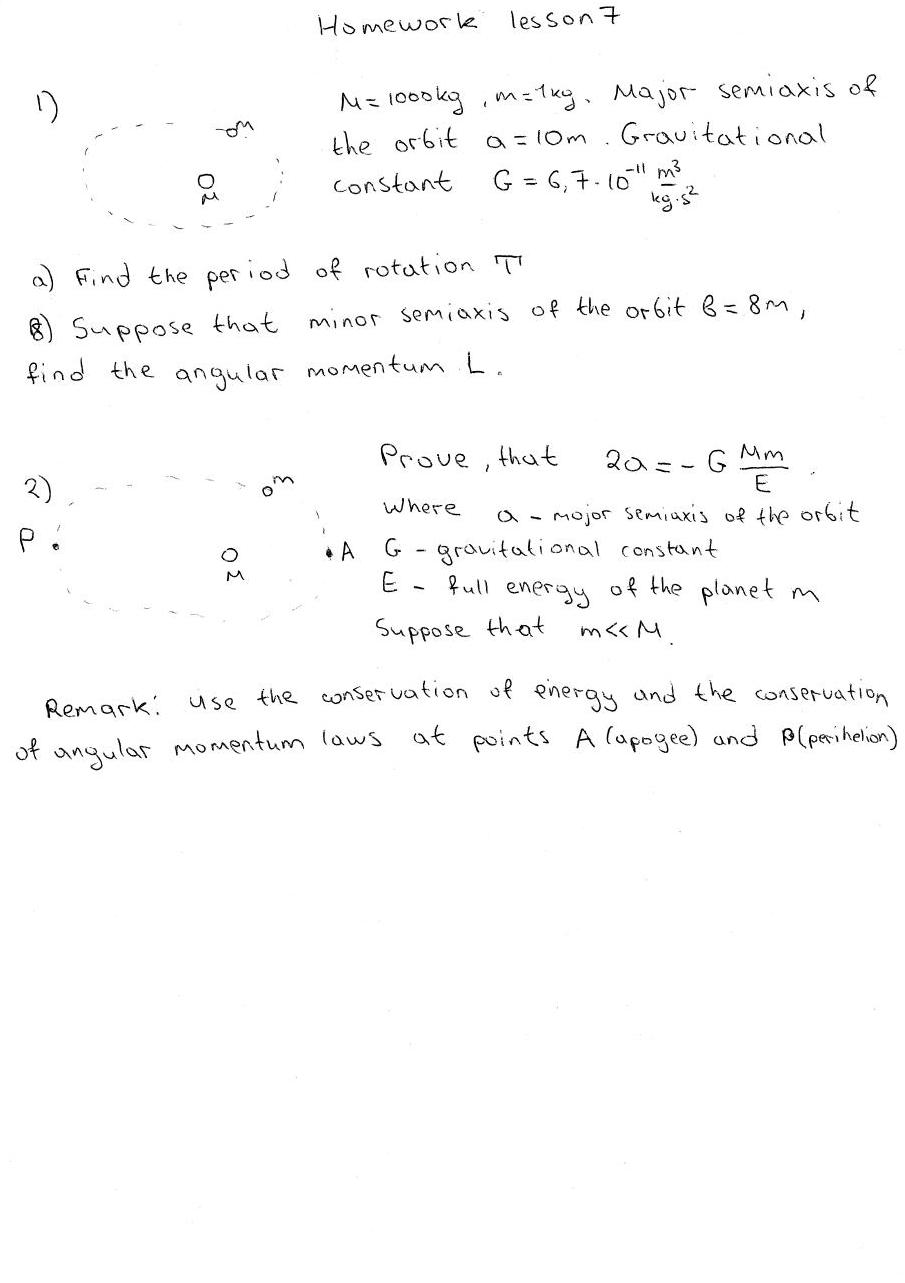 Homework lesson 7
1)
m
M
M = 1000kg, m = 1kg. Major semiaxis of
the orbit a = 10m. Gravitational
constant G = 6,7·10⁻¹¹ m³/kg·s²
a) Find the period of rotation T
B) Suppose that minor semiaxis of the orbit B = 8m,
find the angular momentum L.
2)
m
P
M
A
Prove, that 2a = - G Mm/E.
Where a - major semiaxis of the orbit
G - gravitational constant
E - full energy of the planet m
Suppose that m<<M.
Remark: use the conservation of energy and the conservation
of angular momentum laws at points A (apogee) and P(perihelion)